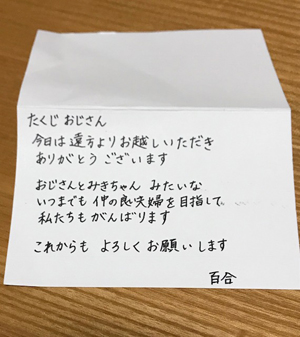 たくじ おじさん
今日は遠方よりお越しいただき
ありがとう ございます
おじさんとみきちゃん みたいな
いつまでも 仲の良い夫婦を目指して、
私たちも がんばります
これからも よろしく お願いします
百合